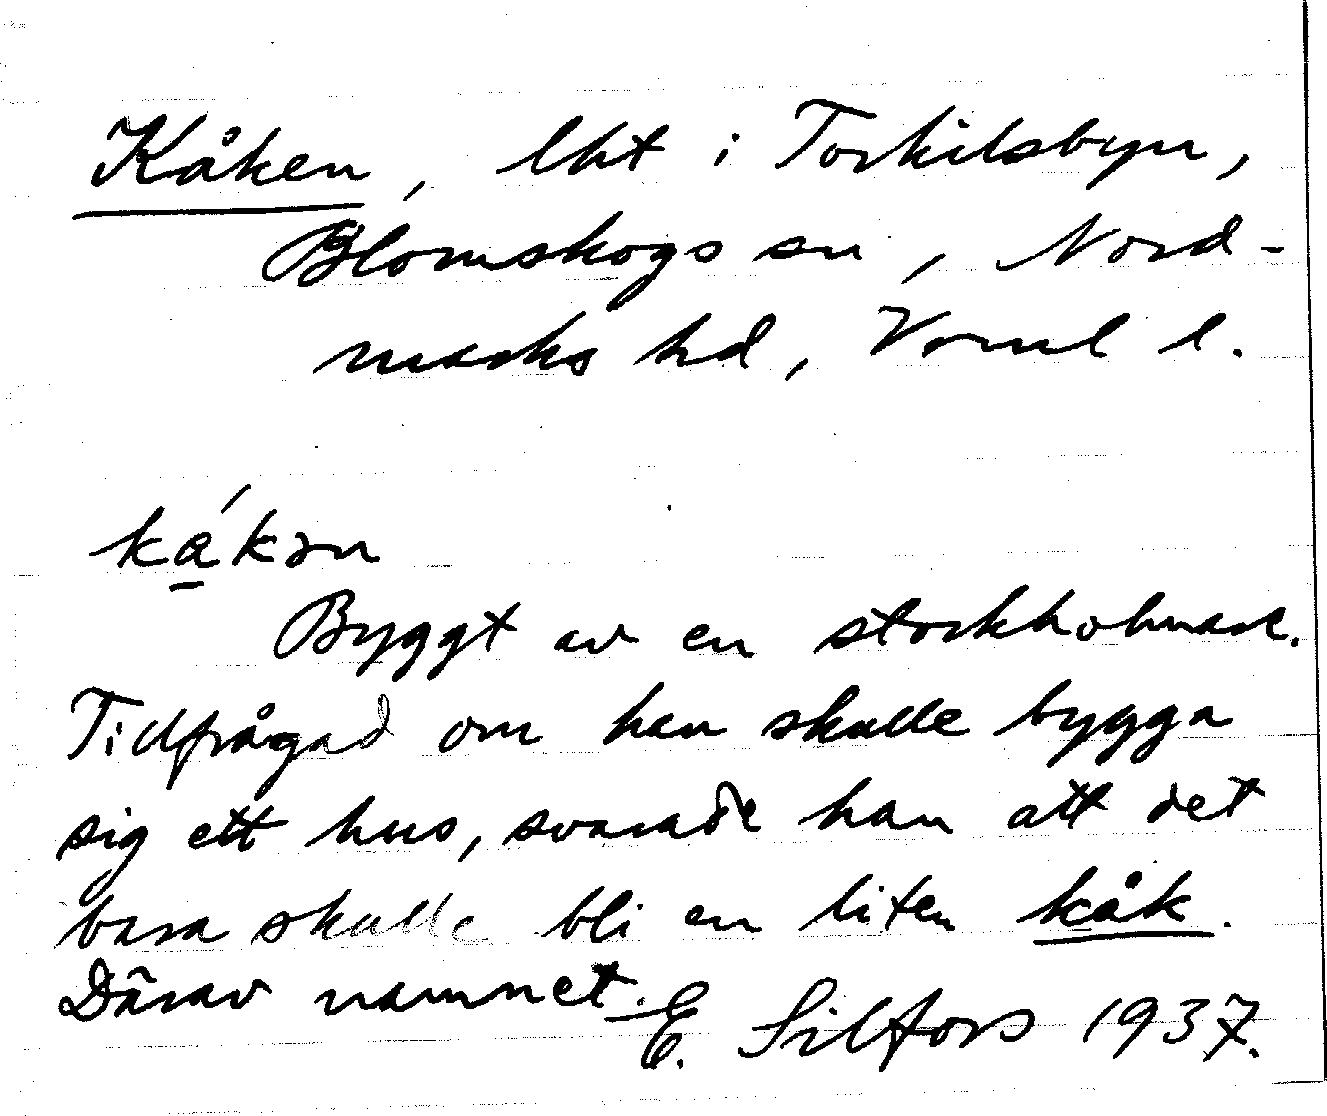 Kåken, lht i Torkilsbyn,
Blomskogs sn, Nord-
marks hd, Vrml l.
ká̱kən
Byggt av en stockholmare.
Tillfrågad om han skulle bygga
sig ett hus, svarade han att det
bara skulle bli en liten kåk.
Därav namnet.
E. Silfors 1937.